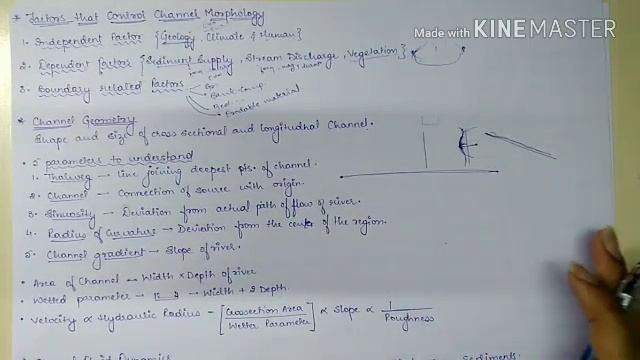 Made With KINEMASTER
* Factors that Control Channel Morphology
1. Independent Factor {Geology, Climate & Human}
2. Dependent factors {Sediment Supply, Stream Discharge, Vegetation}
3. Boundary related Factors
Bank comp
Erodable material
* Channel Geometry
Shape and size of cross sectional and longitudnal Channel.
• 5 parameters to understand
1. Thalweg – Line joining deepest pts. of channel.
2. Channel – Connection of source with origin.
3. Sinuosity – Deviation from actual path of flow of river.
4. Radius of Curvature – Deviation from the center of the region.
5. Channel gradient – Slope of river.
• Area of Channel – Width × Depth of river
• Wetted parameter – Width + 2 Depth
• Velocity ∝ Hydraulic Radius – [Crossection Area / Wetter Parameter] ∝ Slope ∝ 1 / Roughness
Fluid Dynamics
Sediments.